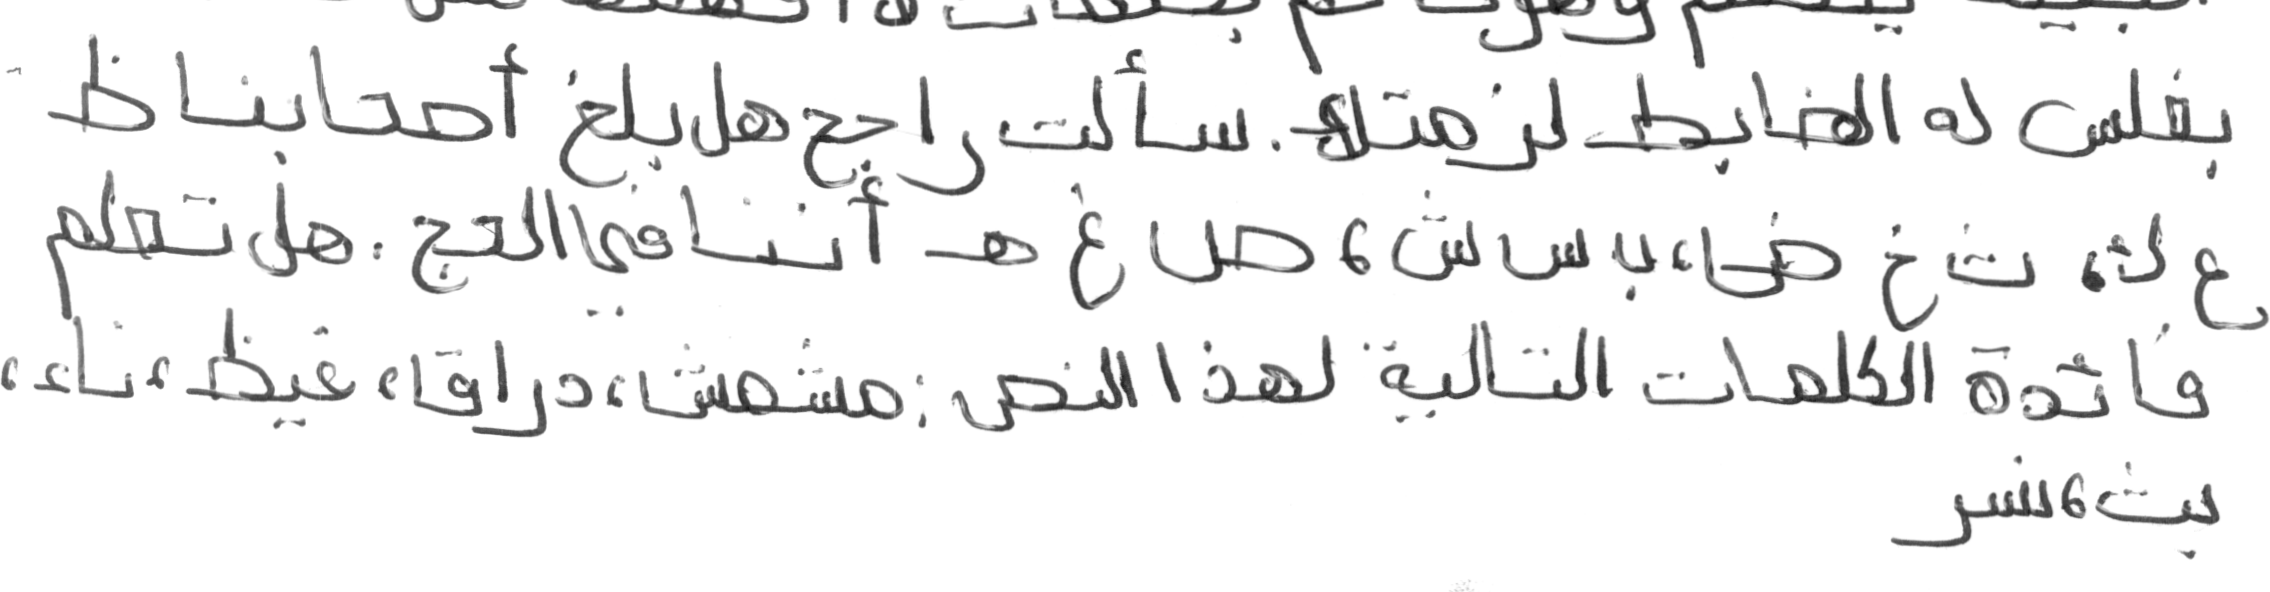 بفلس له الضابط لن متلك. سألت راجح هل بلغ أصحابنا ظ
ع ك، ث خ ض، ب س ش، ص غ هـ أننا في الحج. هل تعلم
فائدة الكلمات التالية لهذا النص: مشمش، دراق، غيظ، ناء،
بث، نسر